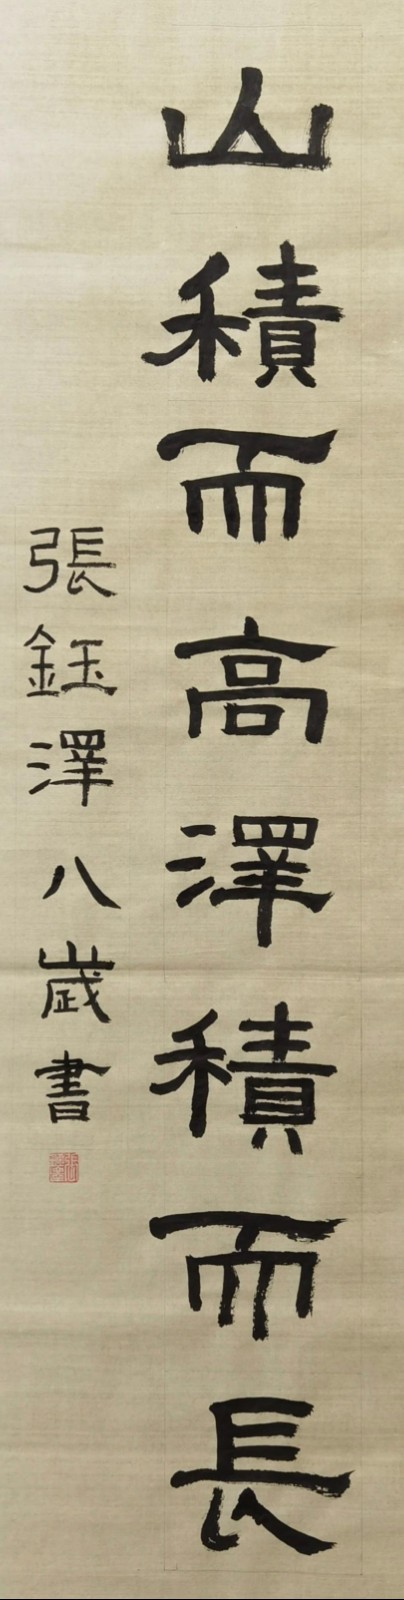 山積而高澤積而長
張鈺澤八歲書